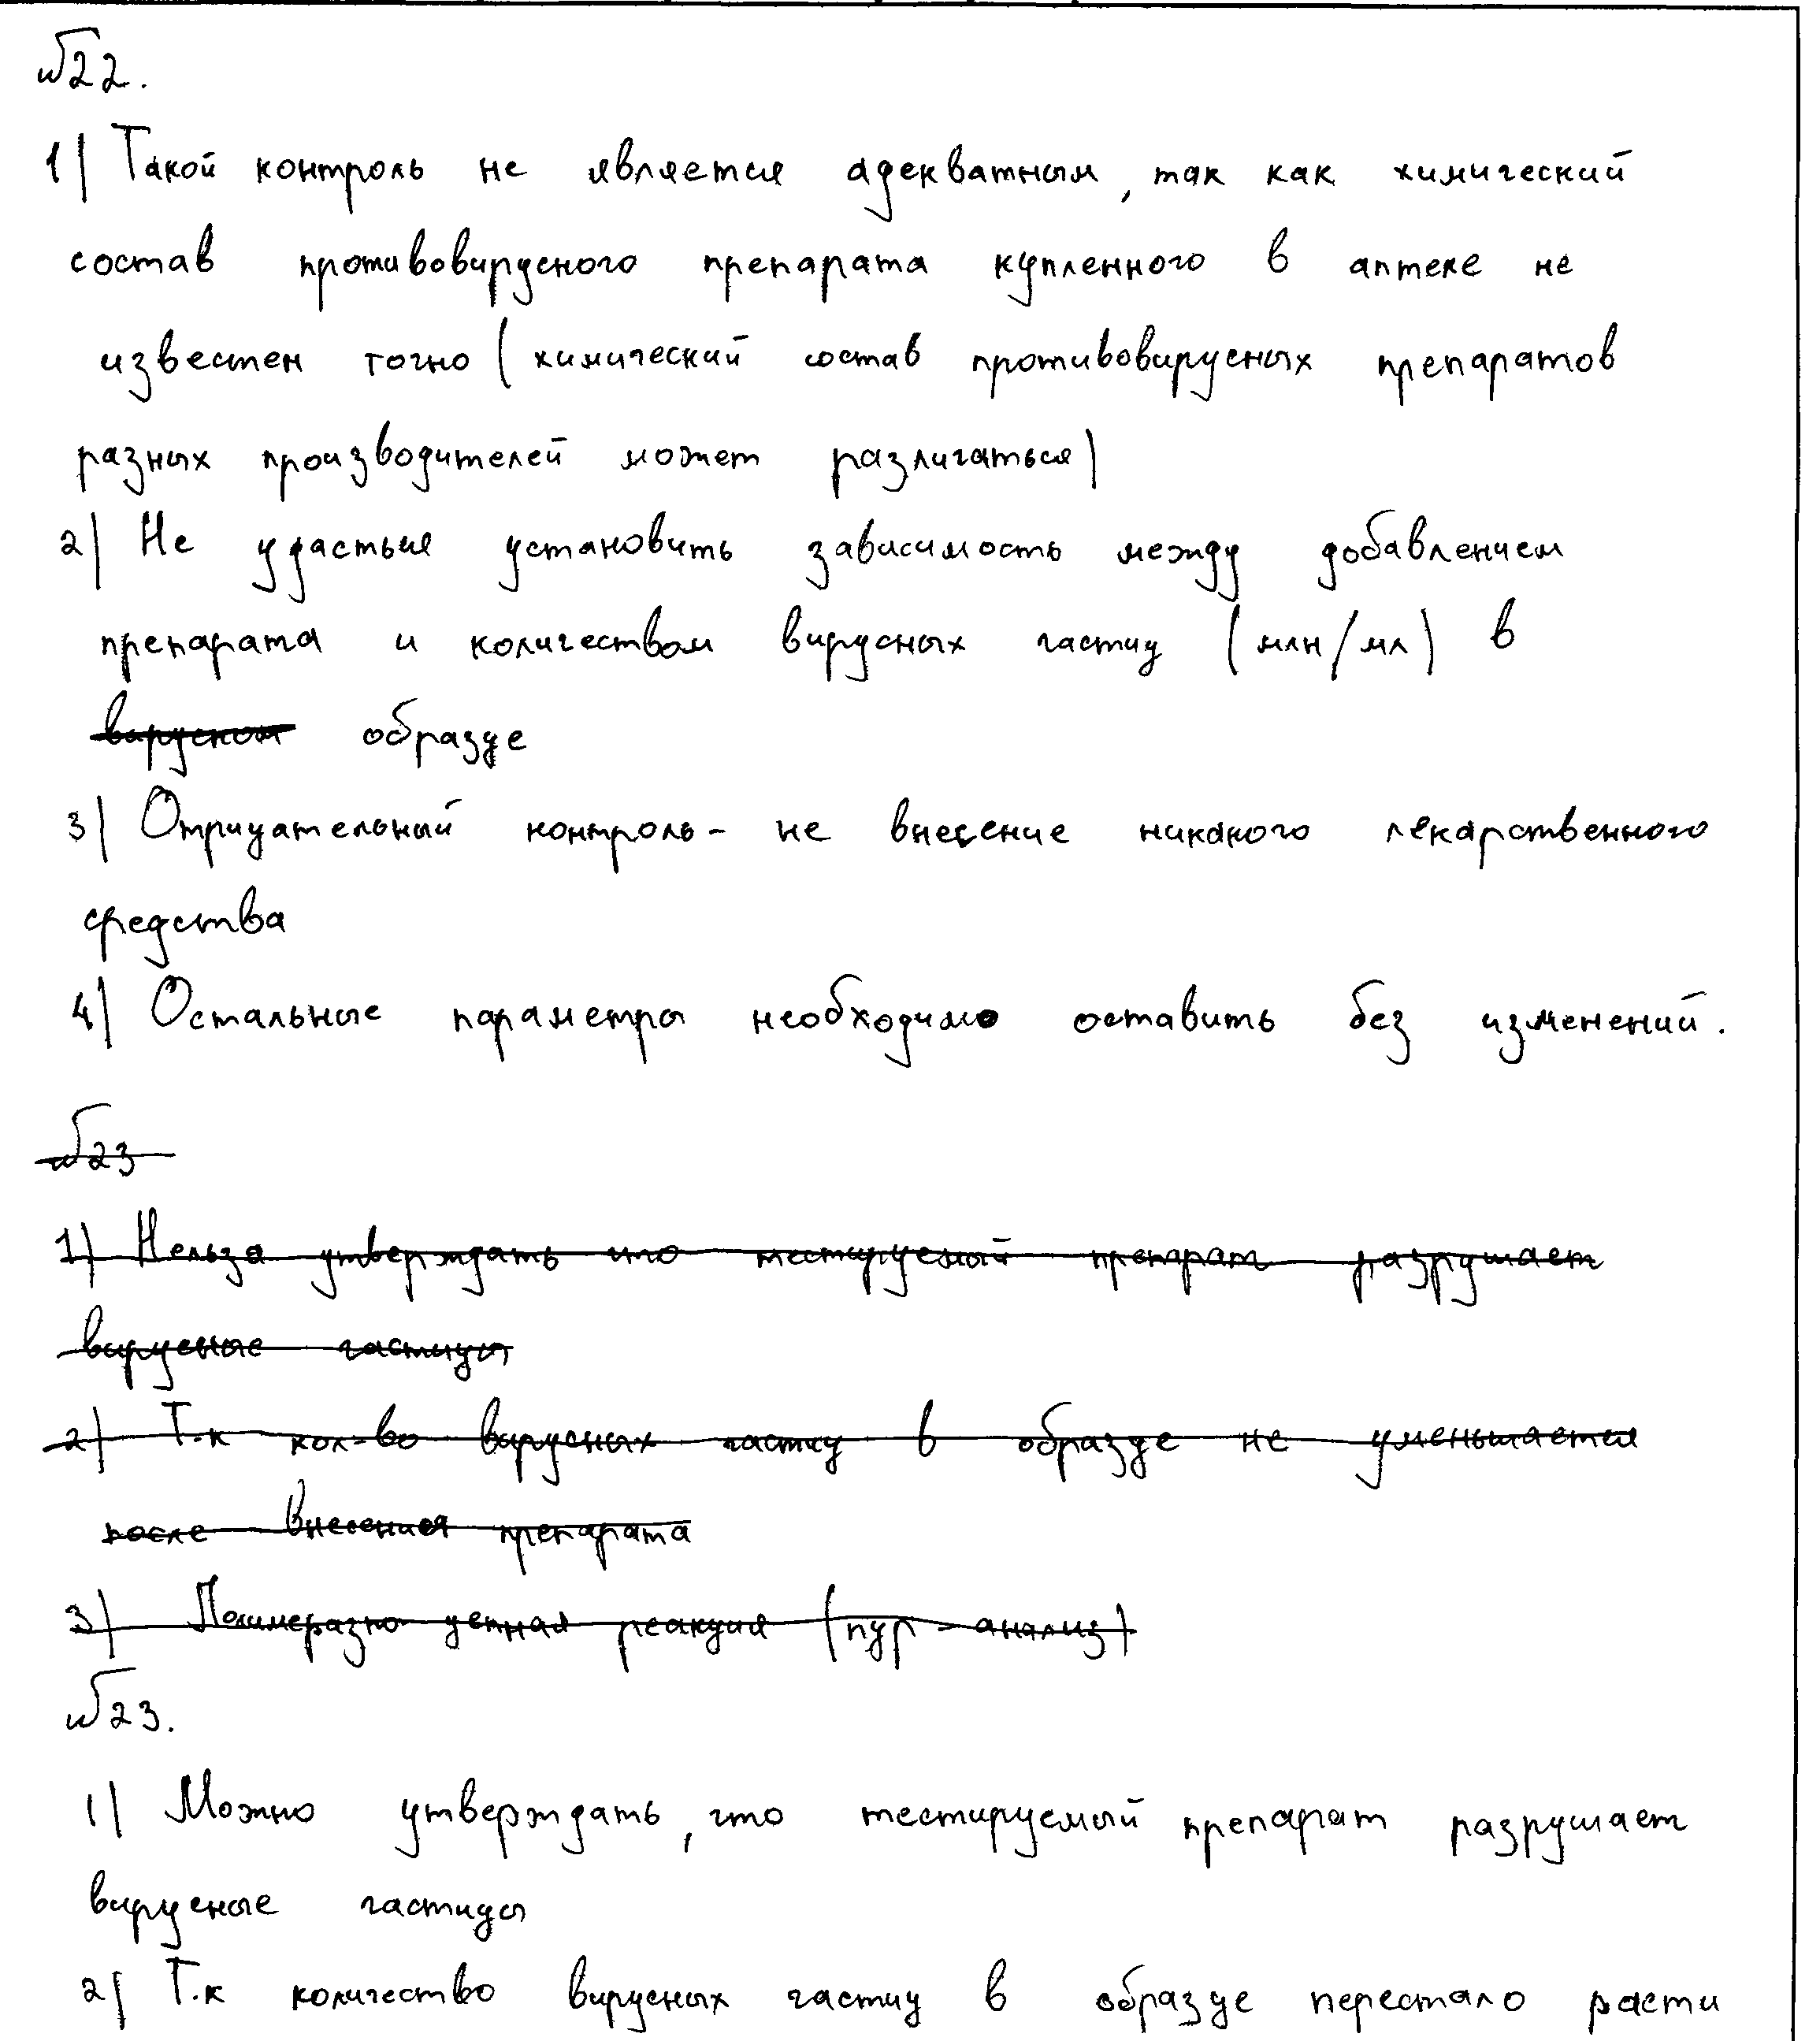 №22.
1) Такой контроль не является адекватным, так как химический
состав противовирусного препарата купленного в аптеке не
известен точно (химический состав противовирусных препаратов
разных производителей может различаться)
2) Не удасться установить зависимость между добавлением
препарата и количеством вирусных частиц (млн/мл) в
вирусном образце
3) Отрицательный контроль - не внесение никакого лекарственного
средства
4) Остальные параметры необходимо оставить без изменений.
№23
1) Нельзя утверждать что тестируемый препарат разрушает
вирусные частицы
2) Т.к кол-во вирусных частиц в образце не уменьшается
после внесения препарата
3) Полимеразно цепная реакция (пцр-анализ)
№23.
1) Можно утверждать, что тестируемый препарат разрушает
вирусные частицы
2) Т.к количество вирусных частиц в образце перестало расти